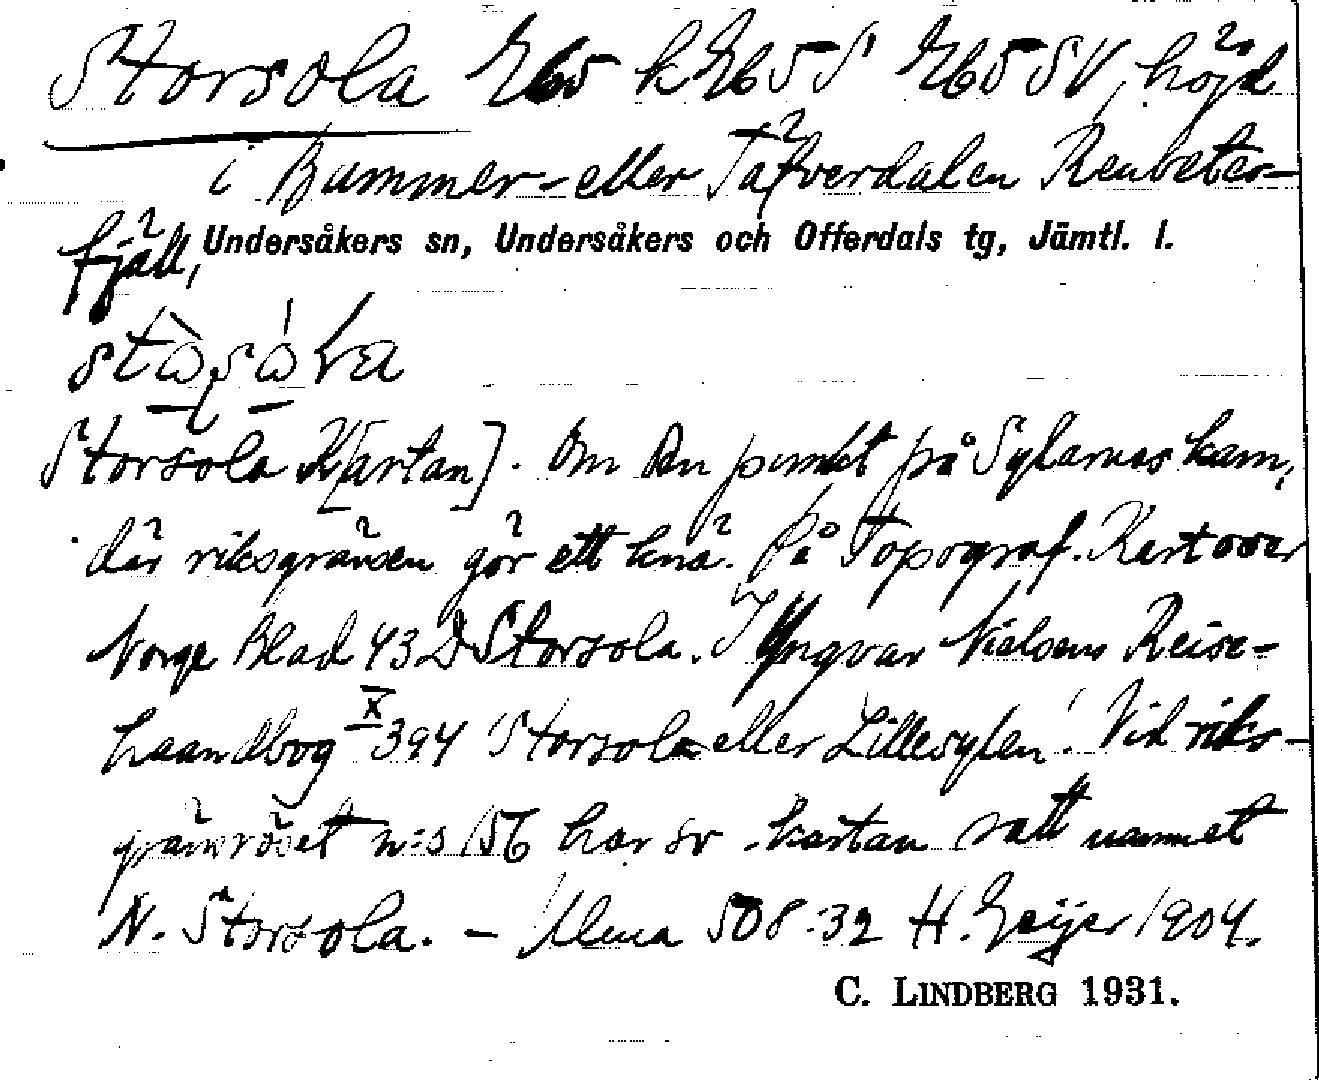 Storsola Gb5 k Gb5 S Gb5 SV, höjd
i Bummer- eller Tåfverdalen Renbeter-
fjäll, Undersåkers sn, Undersåkers och Offerdals tg, Jämtl. l.
Storsola K[artan]. Om den punkt på Sylarnas kam,
där riksgränsen gör ett knä. På Topograf. Kart over
Norge Blad 43 D Storsola. I Yngvar Nielsens Reise-
haandbog X 394 'Storsola eller Lillesylen'. Vid riks-
gränsröset n:s 156 har sv. kartan satt namnet
N. Storsola. - 508:32 H. Geijer 1904.
C. LINDBERG 1931.